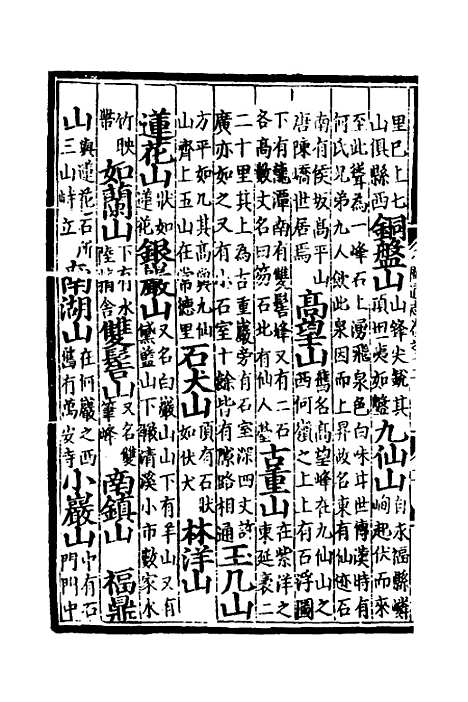 里巳上七
山俱縣西
銅盤山
山鋒尖銳其
項田夷如盤
九仙山
自永福縣嶙
峋起伏而來
至此聳為一峰石上湧飛泉色白味甘世傳漢時有
何氏兄弟九人飲此泉因而上昇故名東有仙迹石
南有侯坂髙平山
唐陳嶠世居焉
高望山
舊名髙望峰在九仙山之
西何嶺之上上有石浮圖
下有龍潭南有雙髻峰又有二石
各髙數丈名曰笏石北有仙人
古重山
在紫洋之
東延袤二
二十里其上為古重巖旁有石室深四丈許
廣亦如之又有小石室十餘皆有隙路相通
王几山
方平如几其髙與九仙
山齊上玉山在常德里
石犬山
頂有石狀
如伏犬
林洋山
蓮花山
狀如
蓮花
銀巖山
又名白巖山山下有羊山又有
黛盤山下瞰清溪小市數家水
竹映
帶
如蘭山
下有水
陸精舍
雙髻山
又名雙
筆峰
南鎮山
福鼎
山
與蓮花石所
三山峙立
南湖山
在何巖之西
舊有萬安寺
小巖山
中有石
門門中